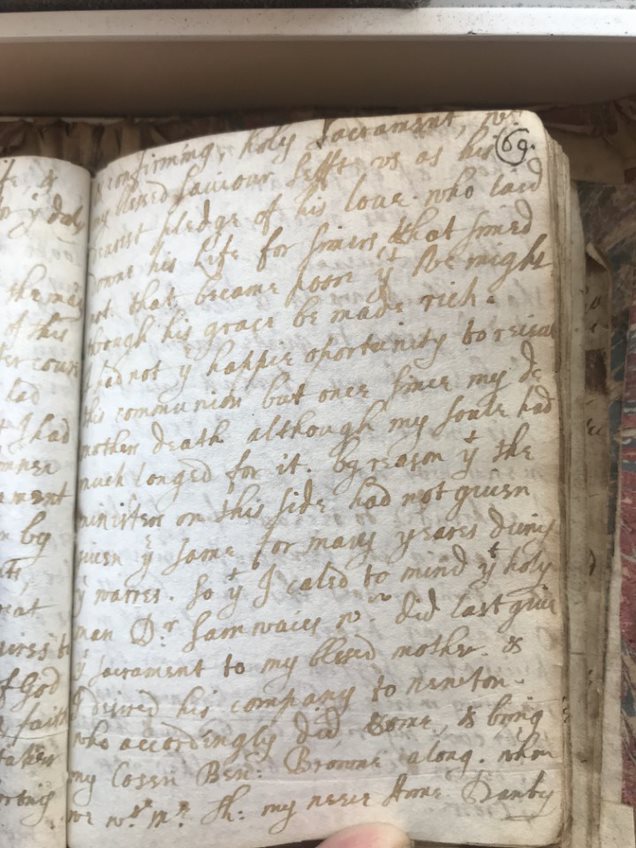 69.
confirming, holy Sacrament, wch
my blesed saviour Lefft us as his
dearest pledge of his love. who laid
downe his Life for siners that sined
not. that became poore yt we might
through his grace be made rich.
I had not ye happie oportunity to receive
this communion but once since my de
mother death although my soule had
much longed for it. by reason yt the
ministers on this side had not given
given ye same for many yeares during
ye warres. so yt I caled to mind yt holy
man Dr. Samwaies wch did last give
ye sacrament to my blesed mother. &
I desired his company to neneton.
who accordingly did Come, & bring
my Cosen Ben: Browne along. when
we wth Mr. Th: my neece Anne Danby
the
of this
had
I had
by
of God
faith
taken